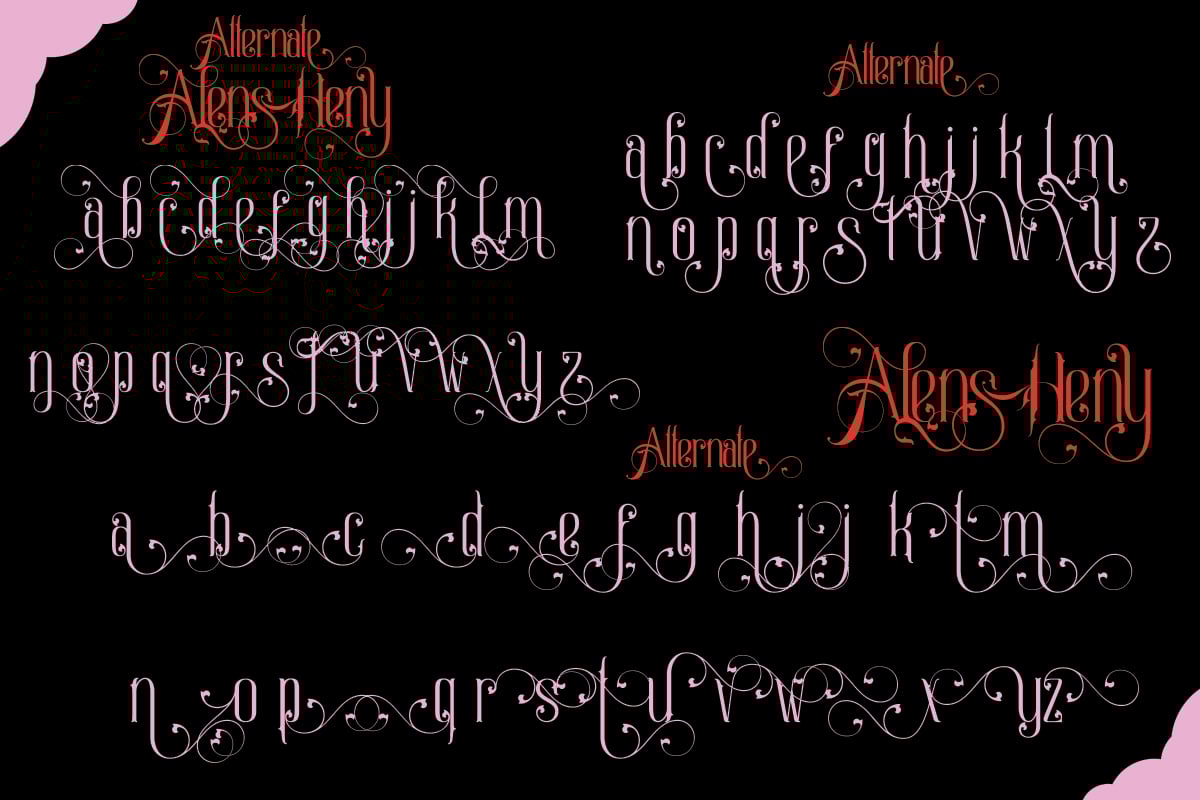 Alternate
Alens-Heny
abcdefghijklm
nopqrstuvwxyz
Alternate
abcdefghijklm
nopqrstuvwxyz
Alens-Heny
Alternate
abcdefghijklm
nopqrstuvwxyz